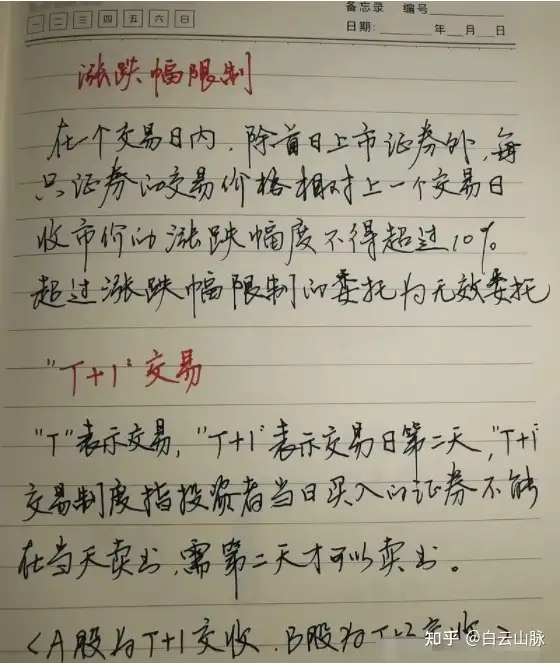 备忘录 编号
一 二 三 四 五 六 日
日期: 年 月 日
涨跌幅限制
在一个交易日内，除首日上市证券外，每
只证券的交易价格相对上一个交易日
收市价的涨跌幅度不得超过10%
超过涨跌幅限制的委托为无效委托
"T+1"交易
"T"表示交易，"T+1"表示交易日第二天，"T+1"
交易制度指投资者当日买入的证券不能
在当天卖出，需第二天才可以卖出。
<A股为T+1交收，B股为T
知乎 @白云山脉